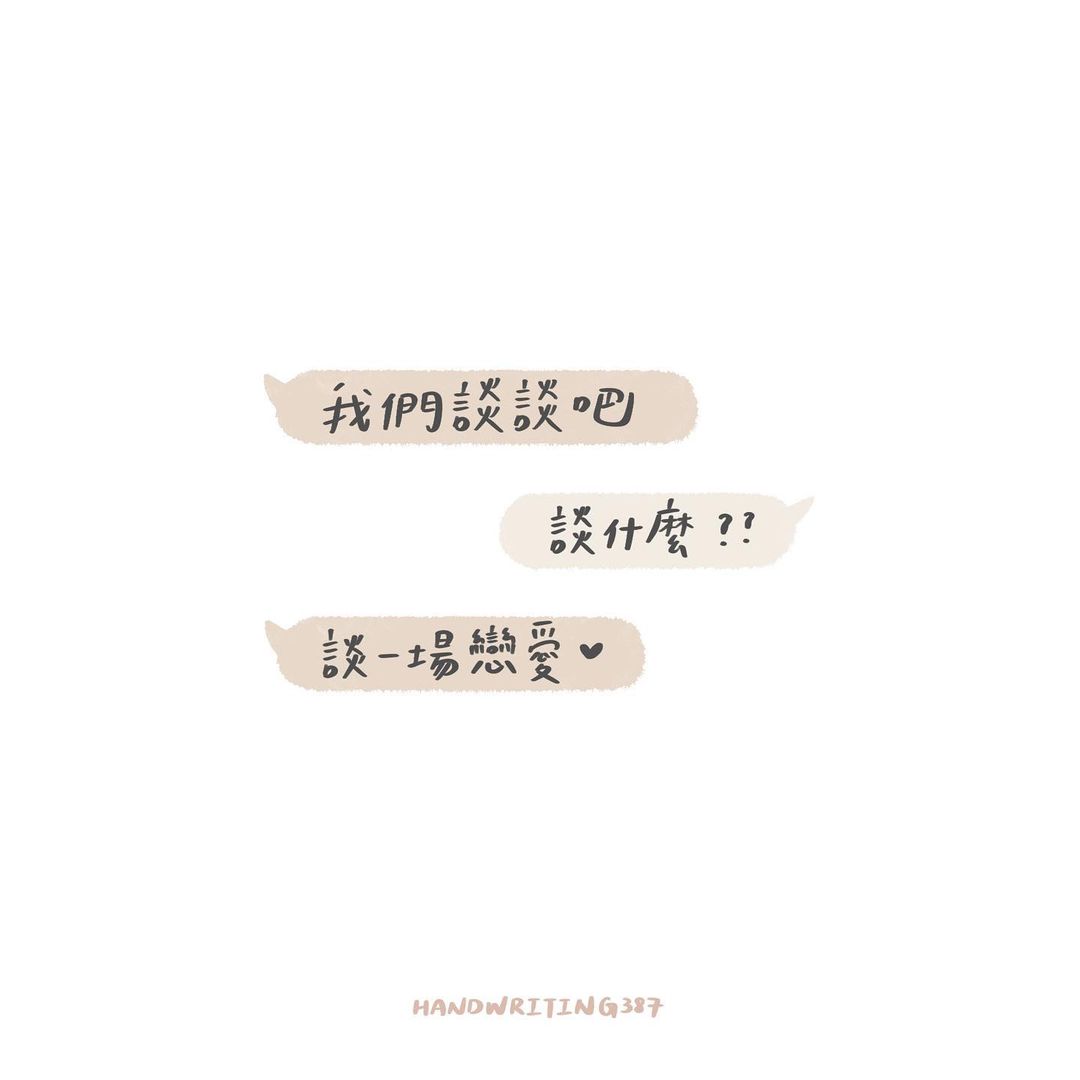 我們談談吧
談什麼??
談一場戀愛♥
HANDWRITING387